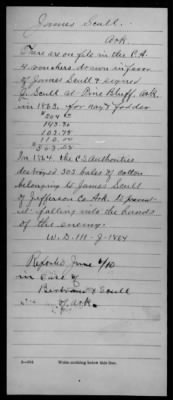 James Scull.
Ark.
There are on file in the C.A.
4 vouchers drawn in favor
of James Scull & signed
J. Scull at Pine Bluff, Ark.
in 1863, for hay & fodder
In 1864 the CS authorities
destroyed 303 bales of cotton
belonging to James Scull
of Jefferson Co Ark. to prevent
it falling into the hands
of the enemy.
Reported June
in case of
Bertrand & Scull
of Ark.
Write nothing below this line.